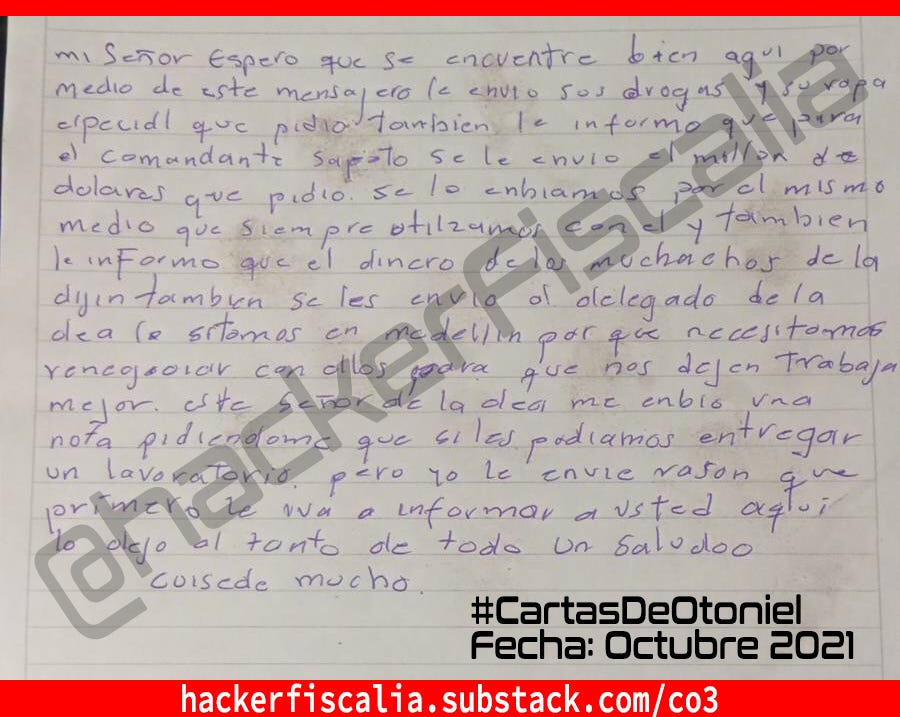 @hackerfiscalia
mi Señor Espero que se encuentre bien aqui por
medio de este mensajero le envio sos drogas y su ropa
especial que pidio tambien le informo que para
el comandante sapoto se le envio el millon de
dolares que pidio. se lo enbiamos por el mismo
medio que siempre otilzamos con el y tambien
le informo que el dinero de los muchachos de la
dijin tambien se les envio al delegado de la
dea lo sitamos en medellin por que necesitamos
renegosiar con ellos para que nos dejen Trabaja
mejor. este señor de la dea me enbio una
nota pidiendome que si les podiamos entregar
un lavoratorio. pero yo le envie rason que
primero le iva a informar a usted aqui
lo dejo al tanto de todo un saludoo
cuisede mucho.
#CartasDeOtoniel
Fecha: Octubre 2021
hackerfiscalia.substack.com/co3